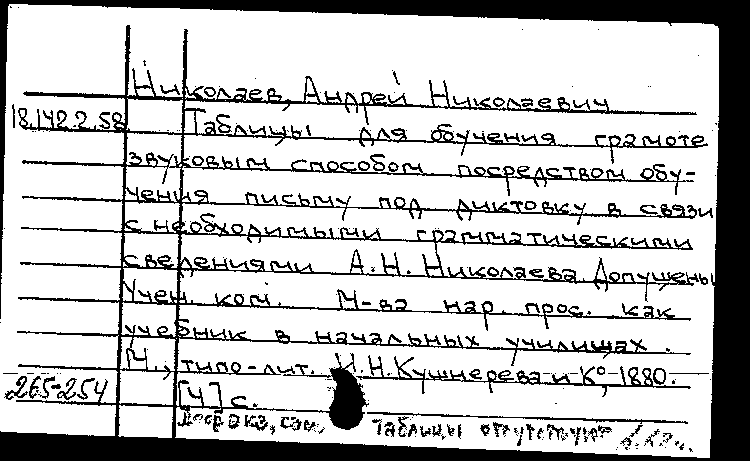 Николаев, Андрей Николаевич
18.142.2.58 Таблицы для обучения грамоте
звуковым способом посредством обу-
чения письму под диктовку в связи
с необходимыми грамматическими
сведениями А.Н. Николаева. Допущены
Учен. ком. М-ва нар. прос. как
учебник в начальных училищах.
М., типо-лит. И.Н. Кушнерева и К°, 1880.
265-254 [4] с.
Таблицы отсутствуют